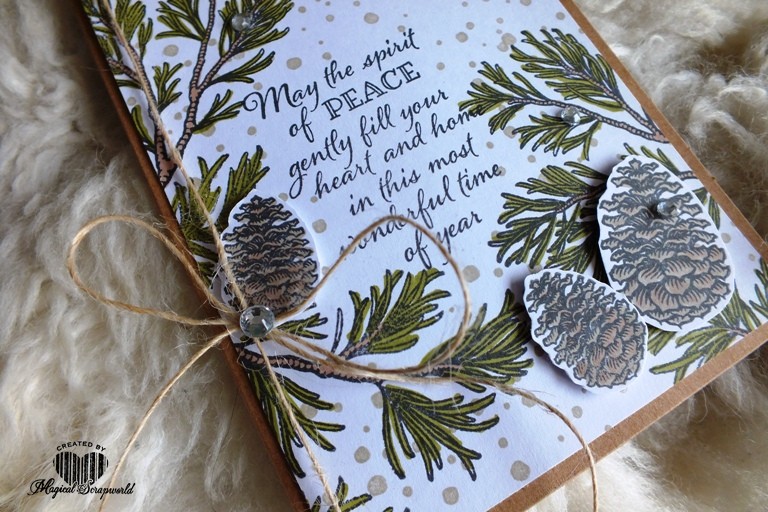 May the spirit
of PEACE
gently fill your
heart and home
in this most
wonderful time
of year
CREATED BY
Magical Scrapworld